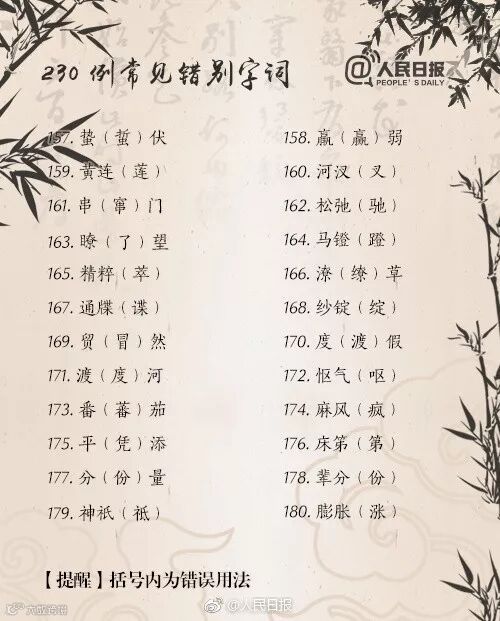 230 例常见错别字词
@人民日报
PEOPLE'S DAILY
157. 蛰（蜇）伏 158. 羸（赢）弱
159. 黄连（莲） 160. 河汊（叉）
161. 串（窜）门 162. 松弛（驰）
163. 瞭（了）望 164. 马镫（蹬）
165. 精粹（萃） 166. 潦（缭）草
167. 通牒（谍） 168. 纱锭（绽）
169. 贸（冒）然 170. 度（渡）假
171. 渡（度）河 172. 怄气（呕）
173. 番（蕃）茄 174. 麻风（疯）
175. 平（凭）添 176. 床笫（第）
177. 分（份）量 178. 辈分（份）
179. 神祇（祗） 180. 膨胀（涨）
【提醒】括号内为错误用法
@人民日报